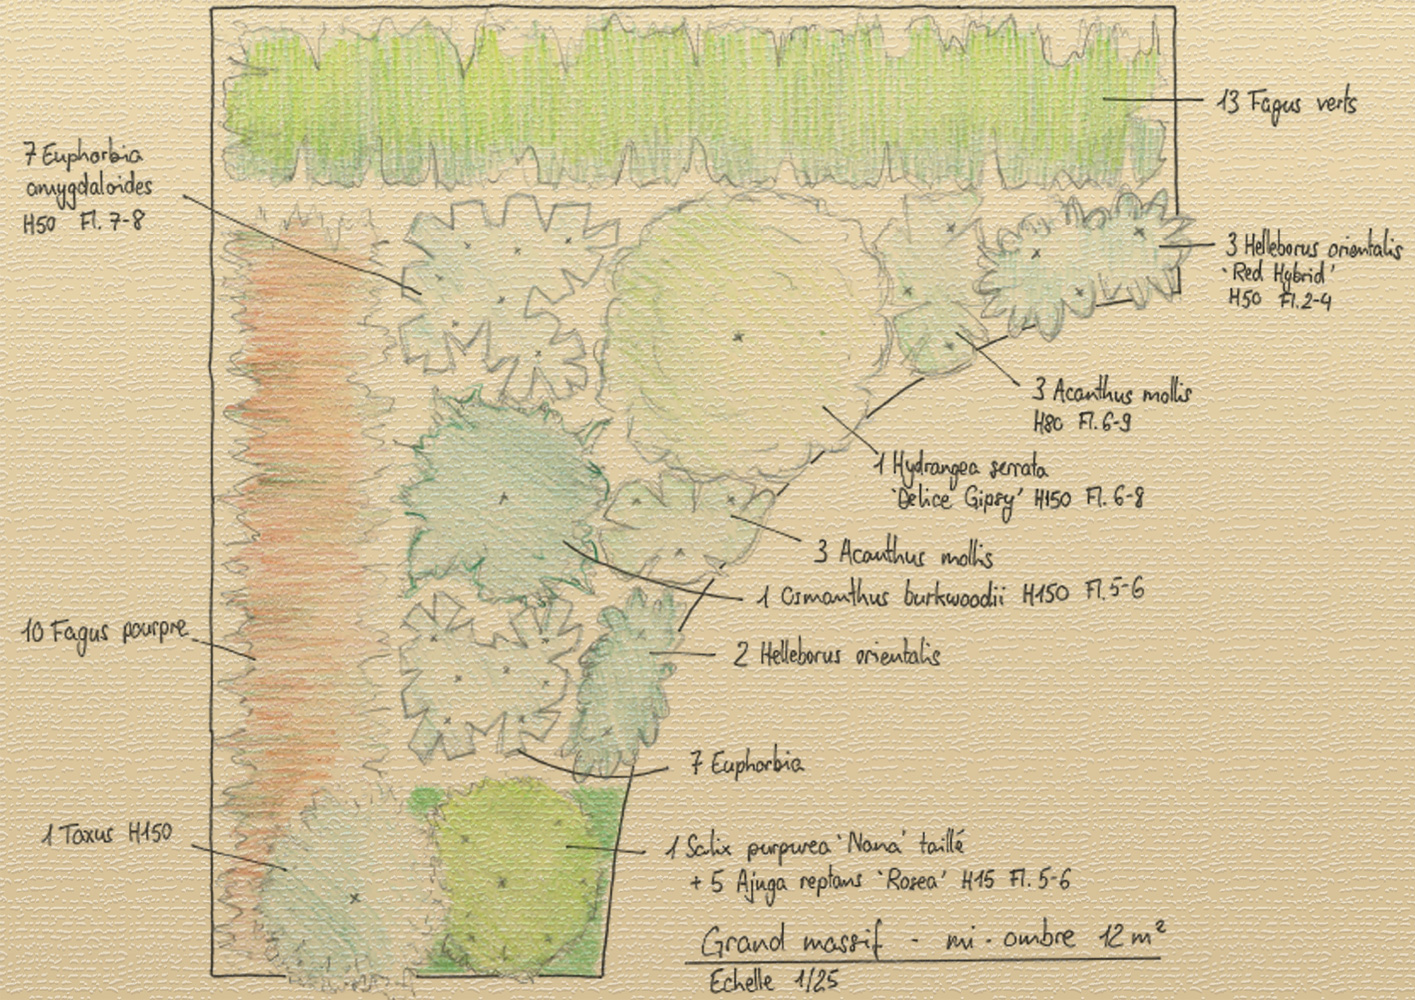 13 Fagus verts
7 Euphorbia
amygdaloides
H50 Fl. 7-8
3 Helleborus orientalis
'Red Hybrid'
H50 Fl. 2-4
3 Acanthus mollis
H80 Fl. 6-9
1 Hydrangea serrata
'Délice Gipsy' H150 Fl. 6-8
3 Acanthus mollis
1 Osmanthus burkwoodii H150 Fl. 5-6
10 Fagus pourpre
2 Helleborus orientalis
7 Euphorbia
1 Taxus H150
1 Salix purpurea 'Nana' taillé
+ 5 Ajuga reptans 'Rosea' H15 Fl. 5-6
Grand massif - mi-ombre 12 m²
Echelle 1/25